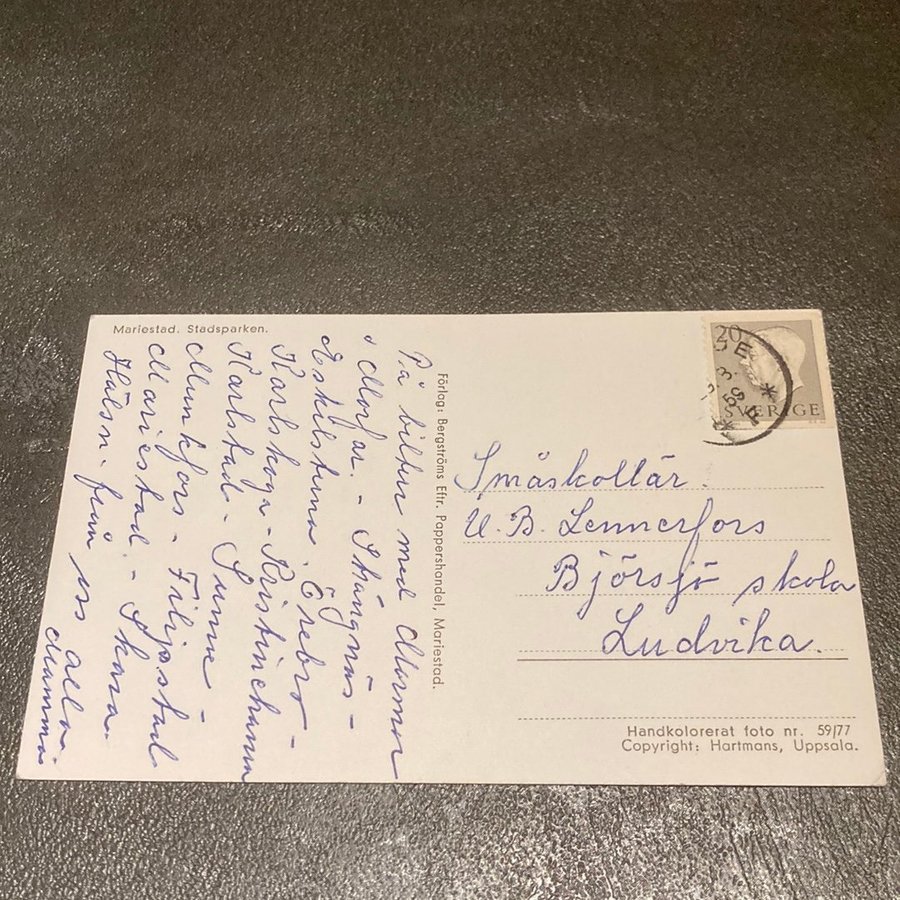 Mariestad. Stadsparken.
På biltur med Mormor
o Morfar. - Strängnäs -
Eskilstuna. Örebro -
Karlskoga - Kristinehamn
Karlstad - Sunne -
Munkfors - Filipstad
Mariestad. - Skara.
Hälsn. från oss alla.
Mamma.
Förlag: Bergströms Eftr. Pappershandel, Mariestad.
20
SVERIGE
Småskollär.
U. B. Lennerfors
Björsjö skola
Ludvika.
Handkolorerat foto nr. 59/77
Copyright: Hartmans, Uppsala.